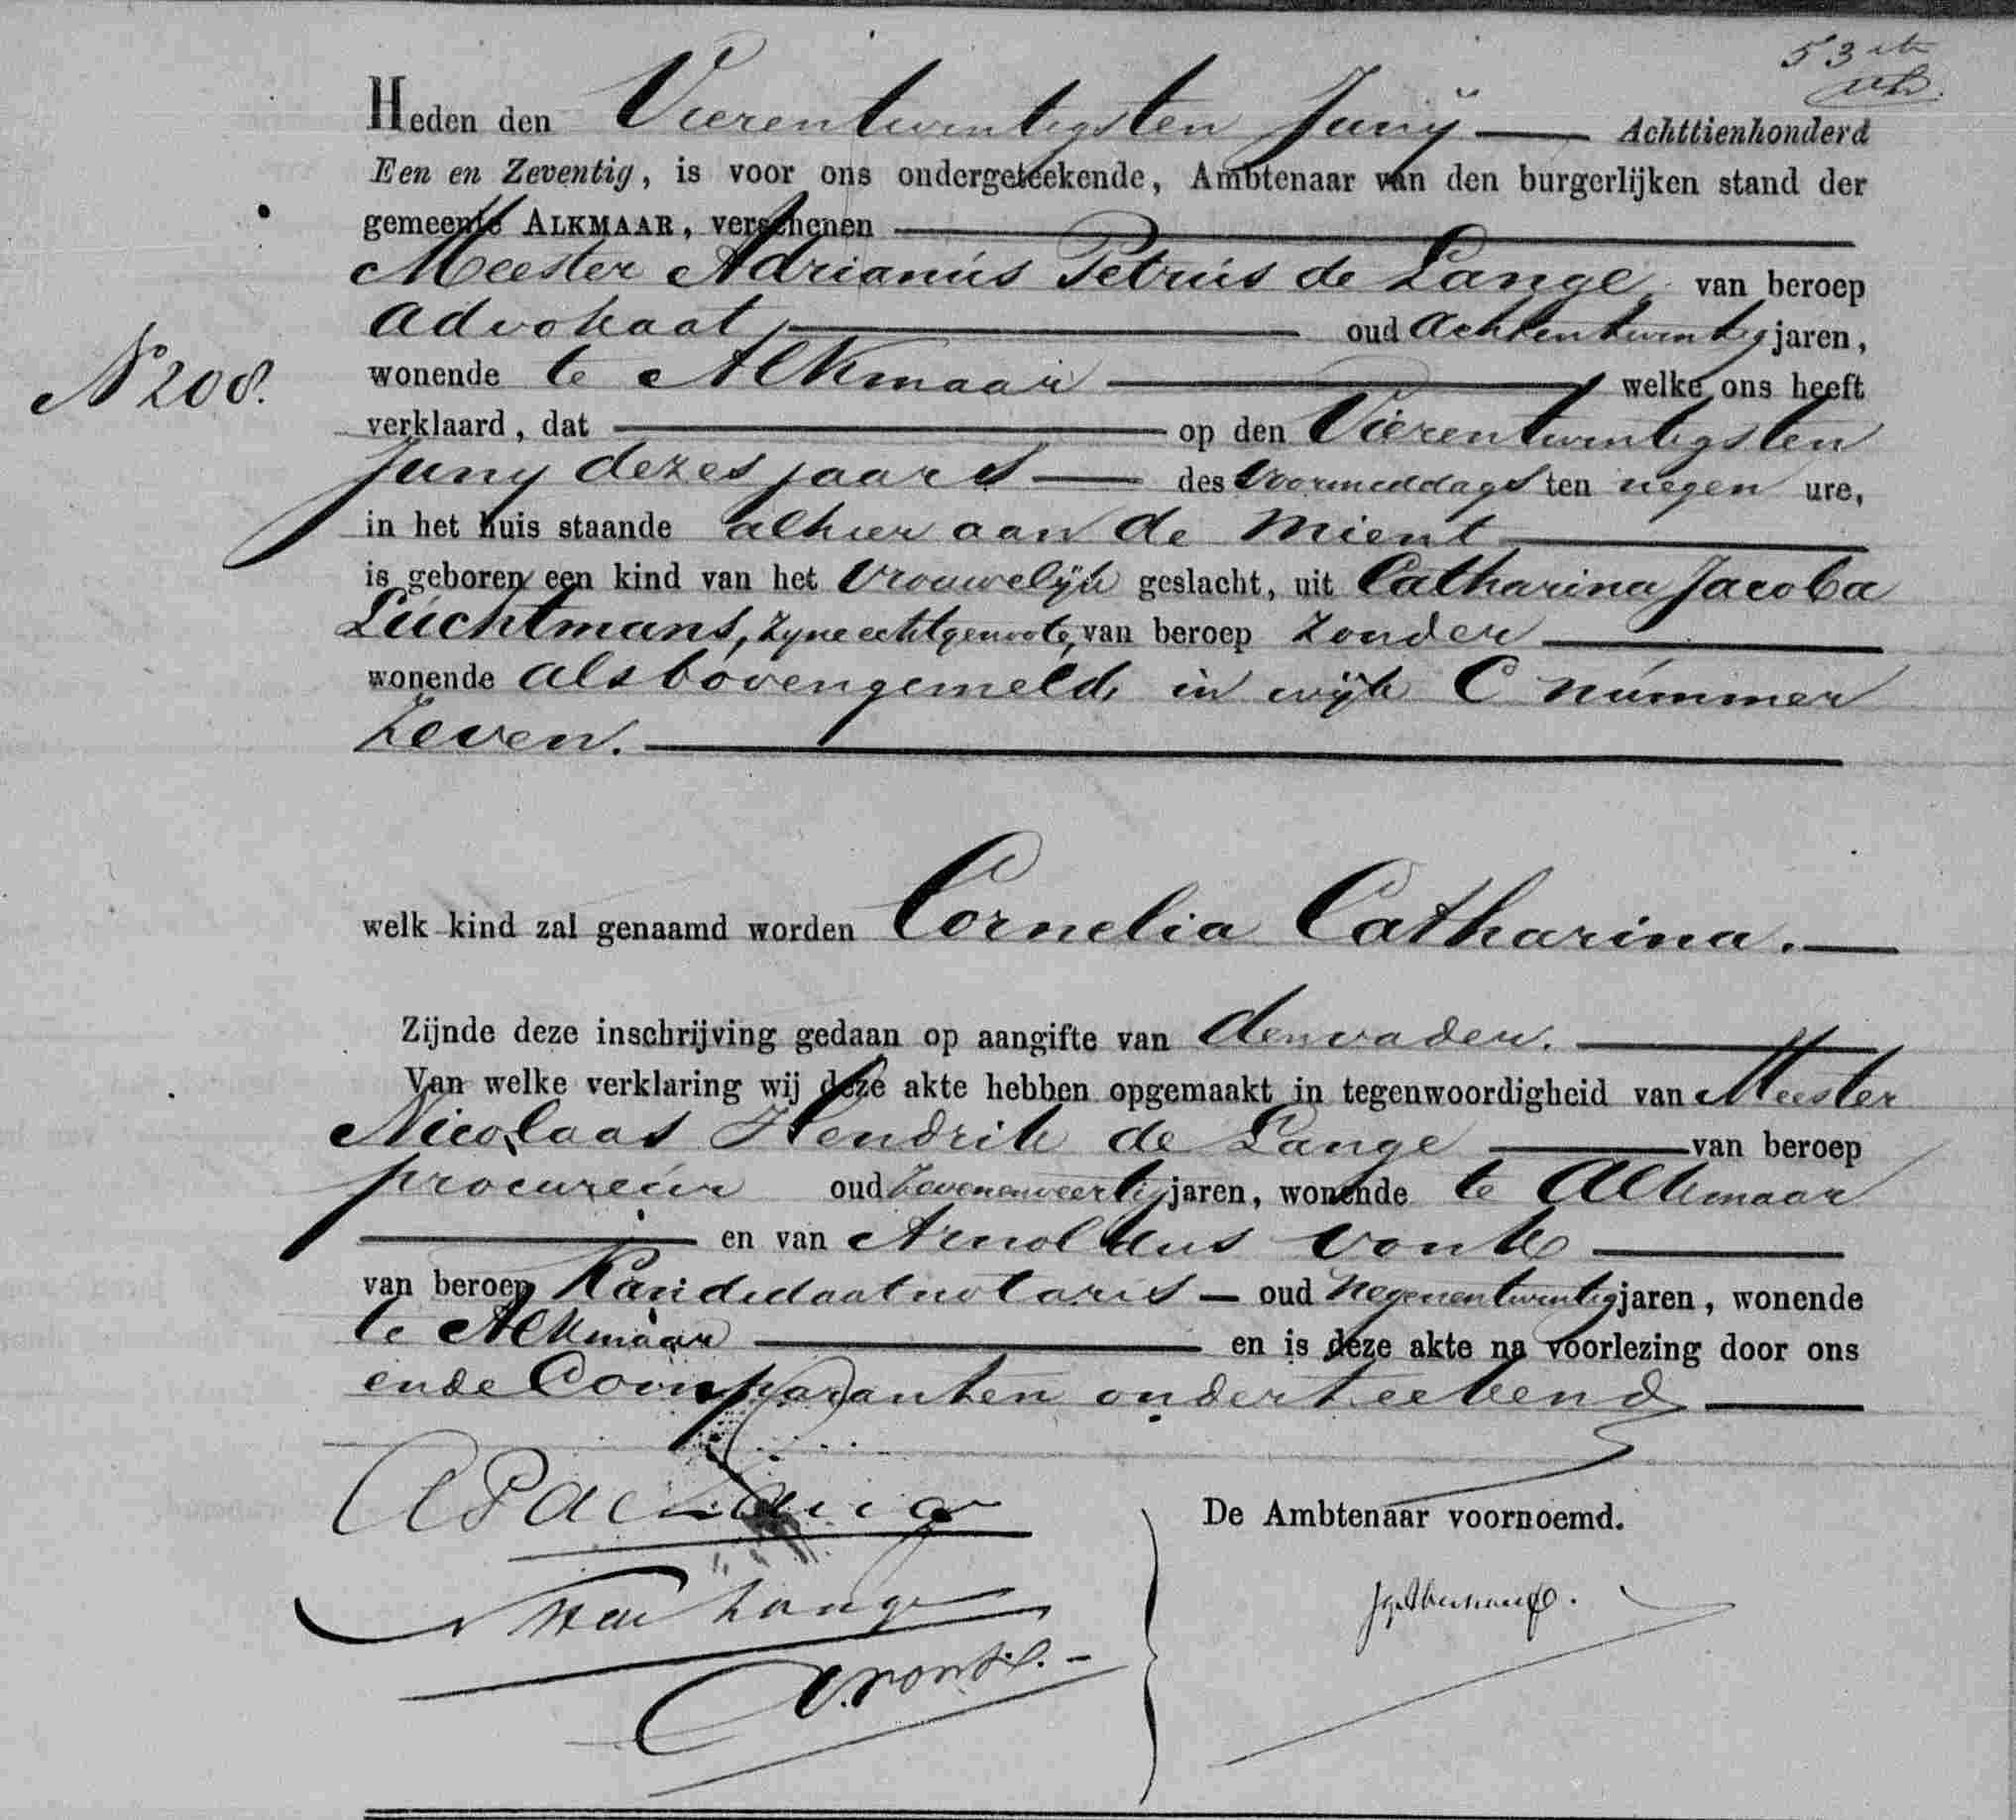 53ste
Heden den Vierentwintigsten Junij Achttienhonderd
Een en Zeventig, is voor ons ondergeteekende, Ambtenaar van den burgerlijken stand der
gemeente ALKMAAR, verschenen
Meester Adrianus Petrus de Lange, van beroep
advokaat, oud achtentwintig jaren,
wonende te Alkmaar, welke ons heeft
N° 208.
verklaard, dat op den Vierentwintigsten
Juny dezes jaars des voormiddags ten negen ure,
in het huis staande alhier aan de Mient
is geboren een kind van het Vrouwelijk geslacht, uit Catharina Jacoba
Luchtmans, zyne echtgenoote, van beroep zonder
wonende als bovengemeld, in wijk C nummer
Zeven.
welk kind zal genaamd worden Cornelia Catharina.
Zijnde deze inschrijving gedaan op aangifte van den vader.
Van welke verklaring wij deze akte hebben opgemaakt in tegenwoordigheid van Meester
Nicolaas Hendrik de Lange van beroep
procureur oud Zevenenveertig jaren, wonende te Alkmaar
en van Arnoldus Vonk
van beroep Kandidaatnotaris oud Negenentwintig jaren, wonende
te Alkmaar en is deze akte na voorlezing door ons
en de Comparanten onderteekend
APdeLange
De Ambtenaar voornoemd.
NHde Lange
A. Vonk.